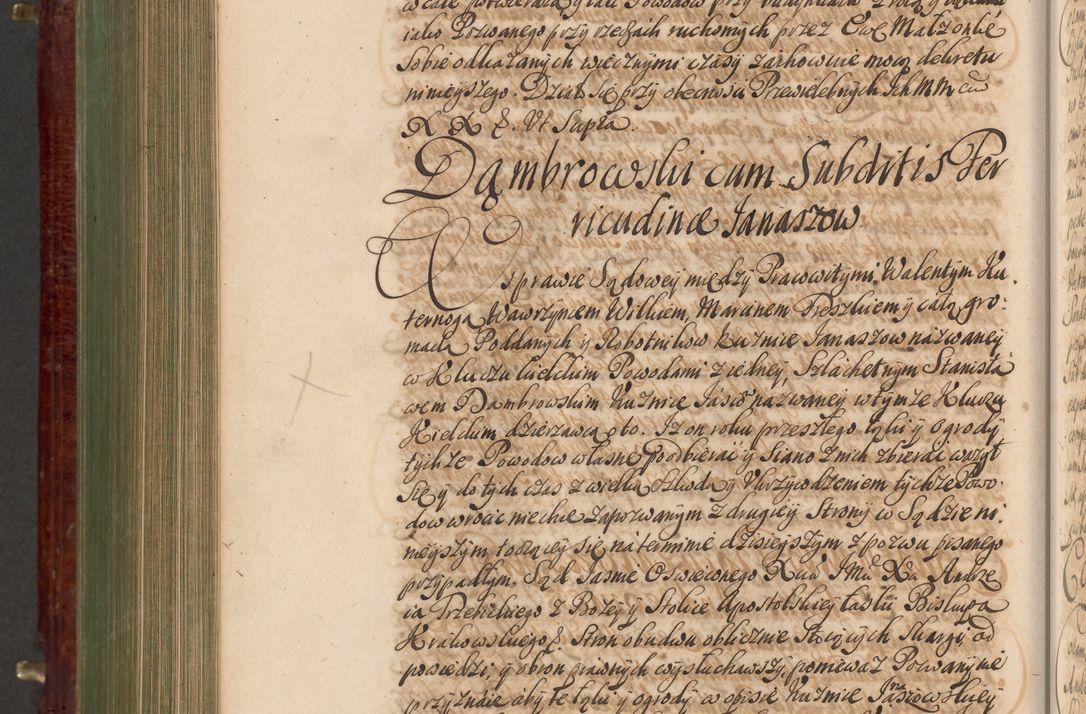 wcale potwierdza y tali Powodow przy budynkach z rolą y
iako Pozwanego przy rzeczach ruchomych przez Ewę Małżonkę
sobie odkazanych wiecznymi czasy zachowuie mocą dekretu
ninieyszego. Działo się przy obecnosci Przewielebnych Ich Mm cu
X X &. Vt Supra.
Dąmbrowski cum Subditis Fer
ricudinæ Janaszow
W sprawie Sądowey między Pracowitymi, Walentym Ku
ternogą Wawrzyncem Wilkiem, Marcinem Freszkiem y całą gro-
madą Poddanych y Robotnikow Kuznice Janaszow nazwaney
w Kluczu kielckim Powodami z iedney, Szlachetnym Stanisła
wem Dąmbrowskim Kuznice Jasio nazwaney w tymze Kluczu
Kielckim dzierzawcą o to. Iz on roku przeszłego łąki y ogrody
tychze Powodow własne poodbierać y Siano z nich zbierać wazył
się y do tych czas z wielką szkodą y Ukrzywdzeniem tychze Powo-
dow wrocic niechce zapozwanym z drugiey Strony w Sądzie ni-
nieyszym toczącey się na terminie dzisieyszym z pozwu pisanego
przypadłym. Sąd Jasnie Oswieconego Xcia JMci Xa Andrze
ia Trzebickiego z Bozey y Stolice Apostolskiey łaski Biskupa
Krakowskiego &. Stron obudwu oblicznie Stoiących Skargi, od
powiedzi, y obron prawnych wysłuchawszy, poniewaz Pozwany nie
przyznaie aby te łąki y ogrody w opisie Kuznice Janaszowskiey